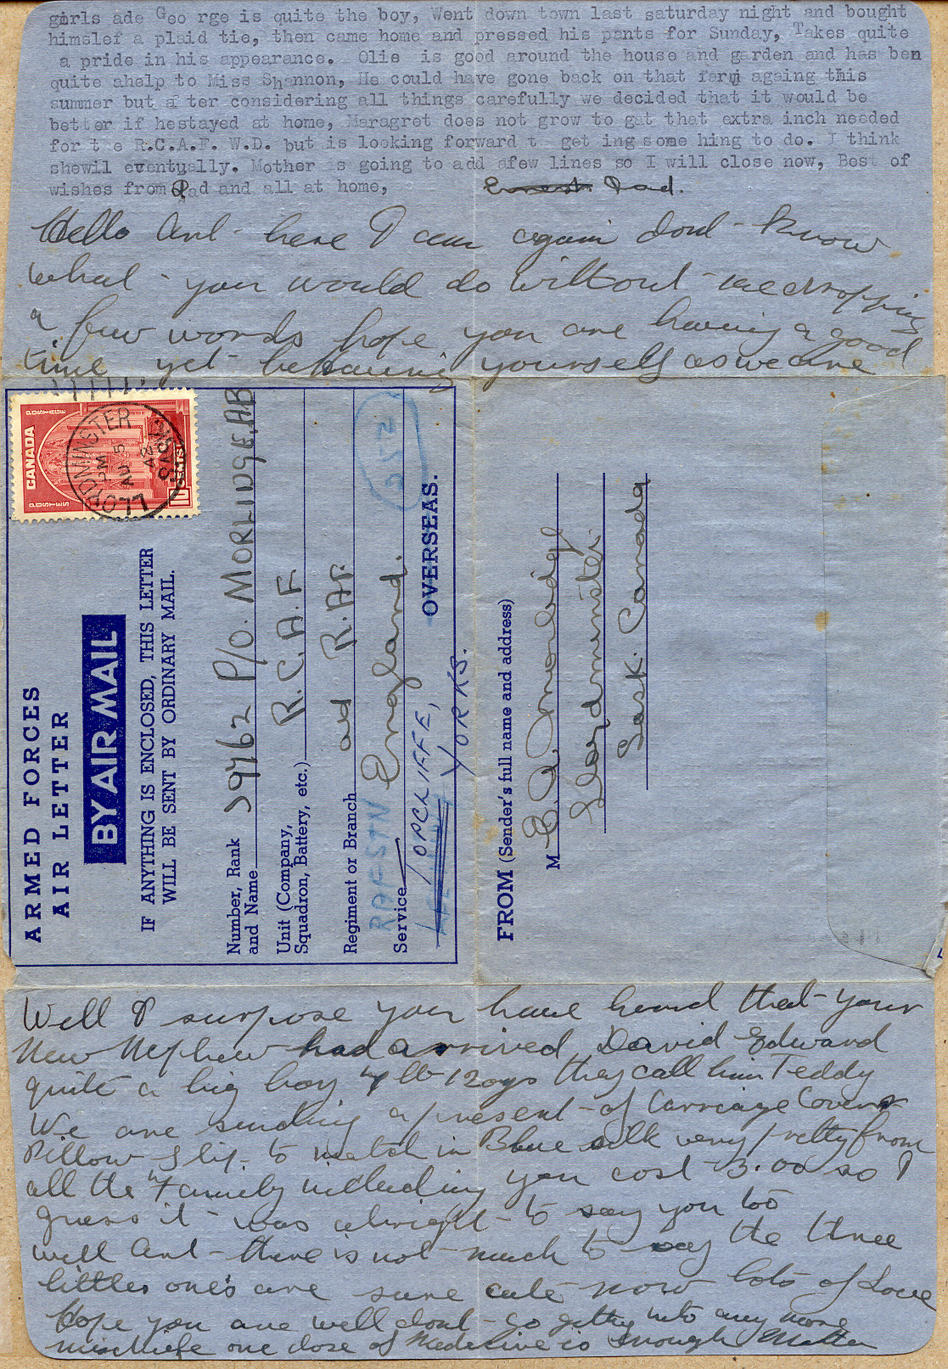 girls ade Geo rge is quite the boy, Went down town last saturday night and bought
himslef a plaid tie, then came home and pressed his pants for Sunday, Takes quite
a pride in his appearance. Olie is good around the house and garden and has ben
quite ahelp to Miss Shannon, He could have gone back on that farm againg this
summer but after considering all things carefully we decided that it would be
better if hestayed at home, Maragret does not grow to gat that extra inch needed
for the R.C.A.F. W.D. but is looking forward t get ing some hing to do. I think
shewil eventually. Mother is going to add afew lines so I will close now, Best of
wishes from Dad and all at home, Ernest Dad.
Hello Art - here I am again dont - know
what - you would do without - me dropping
a few words hope you are having a good
time yet behaving yourself as we are
CANADA
POSTES POSTAGE
10 CENTS
LLOYDMINSTER
PM
AU 5
42
SASK
ARMED FORCES
AIR LETTER
BY AIR MAIL
IF ANYTHING IS ENCLOSED, THIS LETTER
WILL BE SENT BY ORDINARY MAIL.
Number, Rank
and Name J9762 P/O. MORLIDGE, AB
Unit (Company,
Squadron, Battery, etc.) R.C.A.F.
Regiment or Branch R.AF.
RAFSTN
Service England.
TOPCLIFFE,
YORKS.
OVERSEAS.
FROM (Sender's full name and address)
M E. A. Morlidge
Lloydminster
Sask. Canada
Well I suppose you have heard that - your
New Nephew had arrived David Edward
quite a big boy 7 lb - 12 ozs they call him Teddy
We are sending a present - of Carriage Cover
Pillow Slip - to match in Blue silk very pretty from
all the Family including you cost - 3.00 so I
guess it - was alright - to say you too
well Art - there is not - much to say the three
little one's are sure cute now lots of Love
Hope you are well dont - go getting into any more
mischife one dose of Medecine is enough Mother